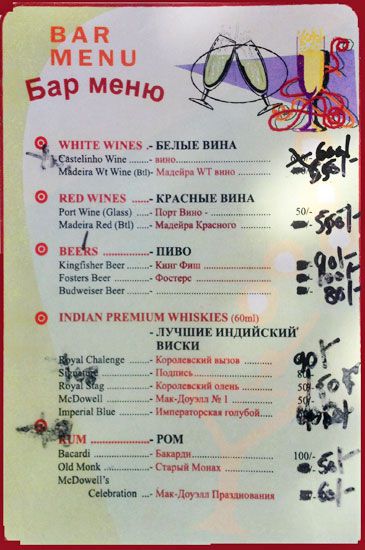 BAR
MENU
Бар меню
WHITE WINES .- БЕЛЫЕ ВИНА
Castelinho Wine .....- вино 600/-
Madeira Wt Wine (Btl)- Мадейра WT вино 550/-
RED WINES ......- КРАСНЫЕ ВИНА
Port Wine (Glass) ....- Порт Вино - 50/-
Madeira Red (Btl) ....- Мадейра Красного 550/-
BEERS ..............- ПИВО
Kingfisher Beer .......- Кинг Фиш 90/-
Fosters Beer ...........- Фостерс
Budweiser Beer ....... 80/-
INDIAN PREMIUM WHISKIES (60ml)
- ЛУЧШИЕ ИНДИЙСКИЙ
ВИСКИ
Royal Chalenge ......- Королевский вызов 90/-
Signature ...............- Подпись 80/-
Royal Stag .............- Королевский олень 50/-
McDowell ..............- Мак-Доуэлл № 1
Imperial Blue .........- Императорская голубой
RUM ..................- РОМ
Bacardi ..................- Бакарди 100/-
Old Monk ...............- Старый Монах 50/-
McDowell's
Celebration ...- Мак-Доуэлл Празднования 60/-